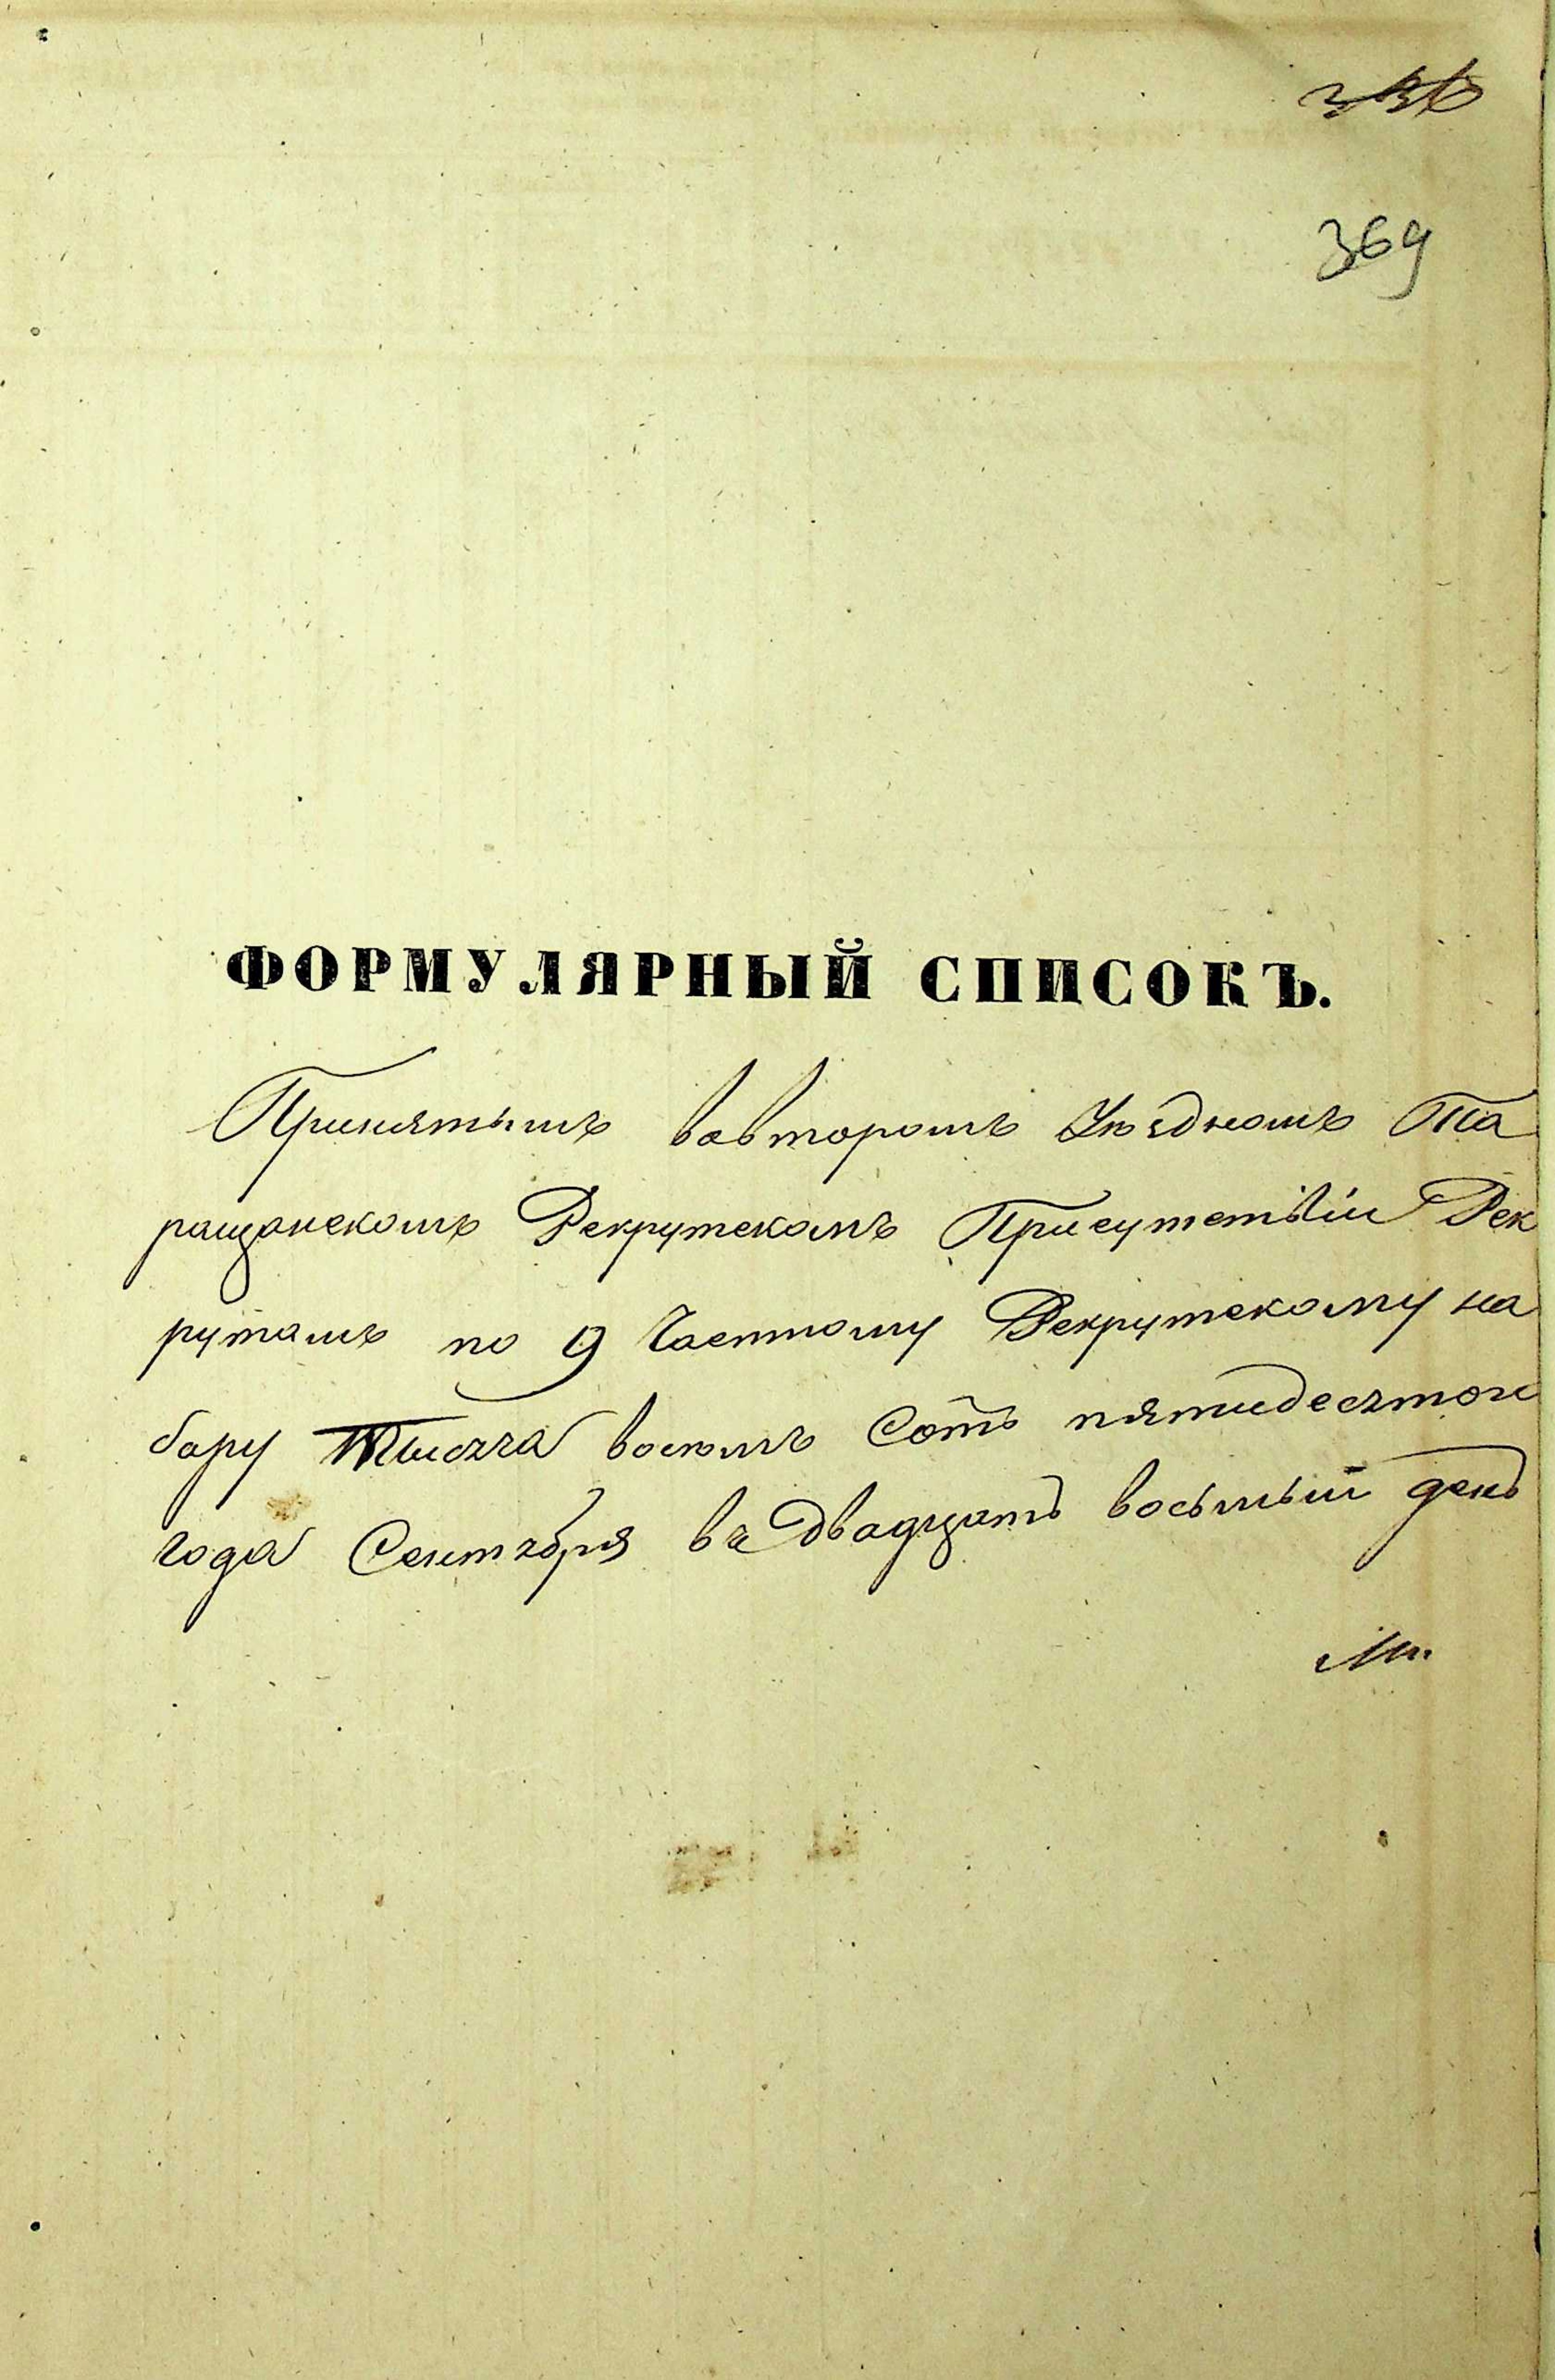 369
ФОРМУЛЯРНЫЙ СПИСОКЪ.
Принятымъ вовторомъ Уѣздномъ Та
ращанскомъ Рекрутскомъ Присутствіи Рек
рутамъ по 9 Частному Рекрутскому на
бору Тысяча восемъ Сотъ пятидесятои
года Сентября въ Двадцать восьмый день